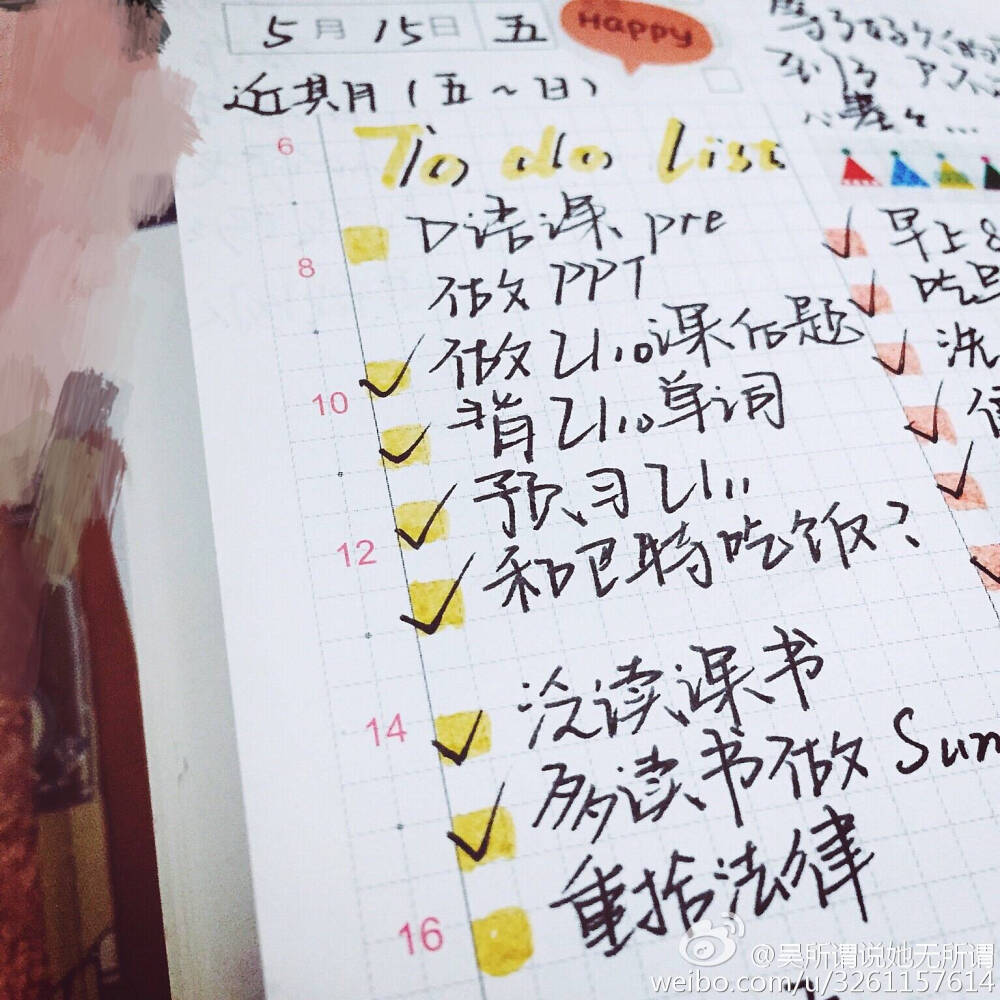 5月15日 五
Happy
近期月(五~日)
To do list
6
口语课 pre
8
做PPT
做2110课后题
10
背2110单词
预习211
12
和巴特吃饭?
泛读课书
14
多读书做 Sum
重拾法律
16
早上8
吃早
洗
@吴所谓说她无所谓
weibo.com/u/3261157614